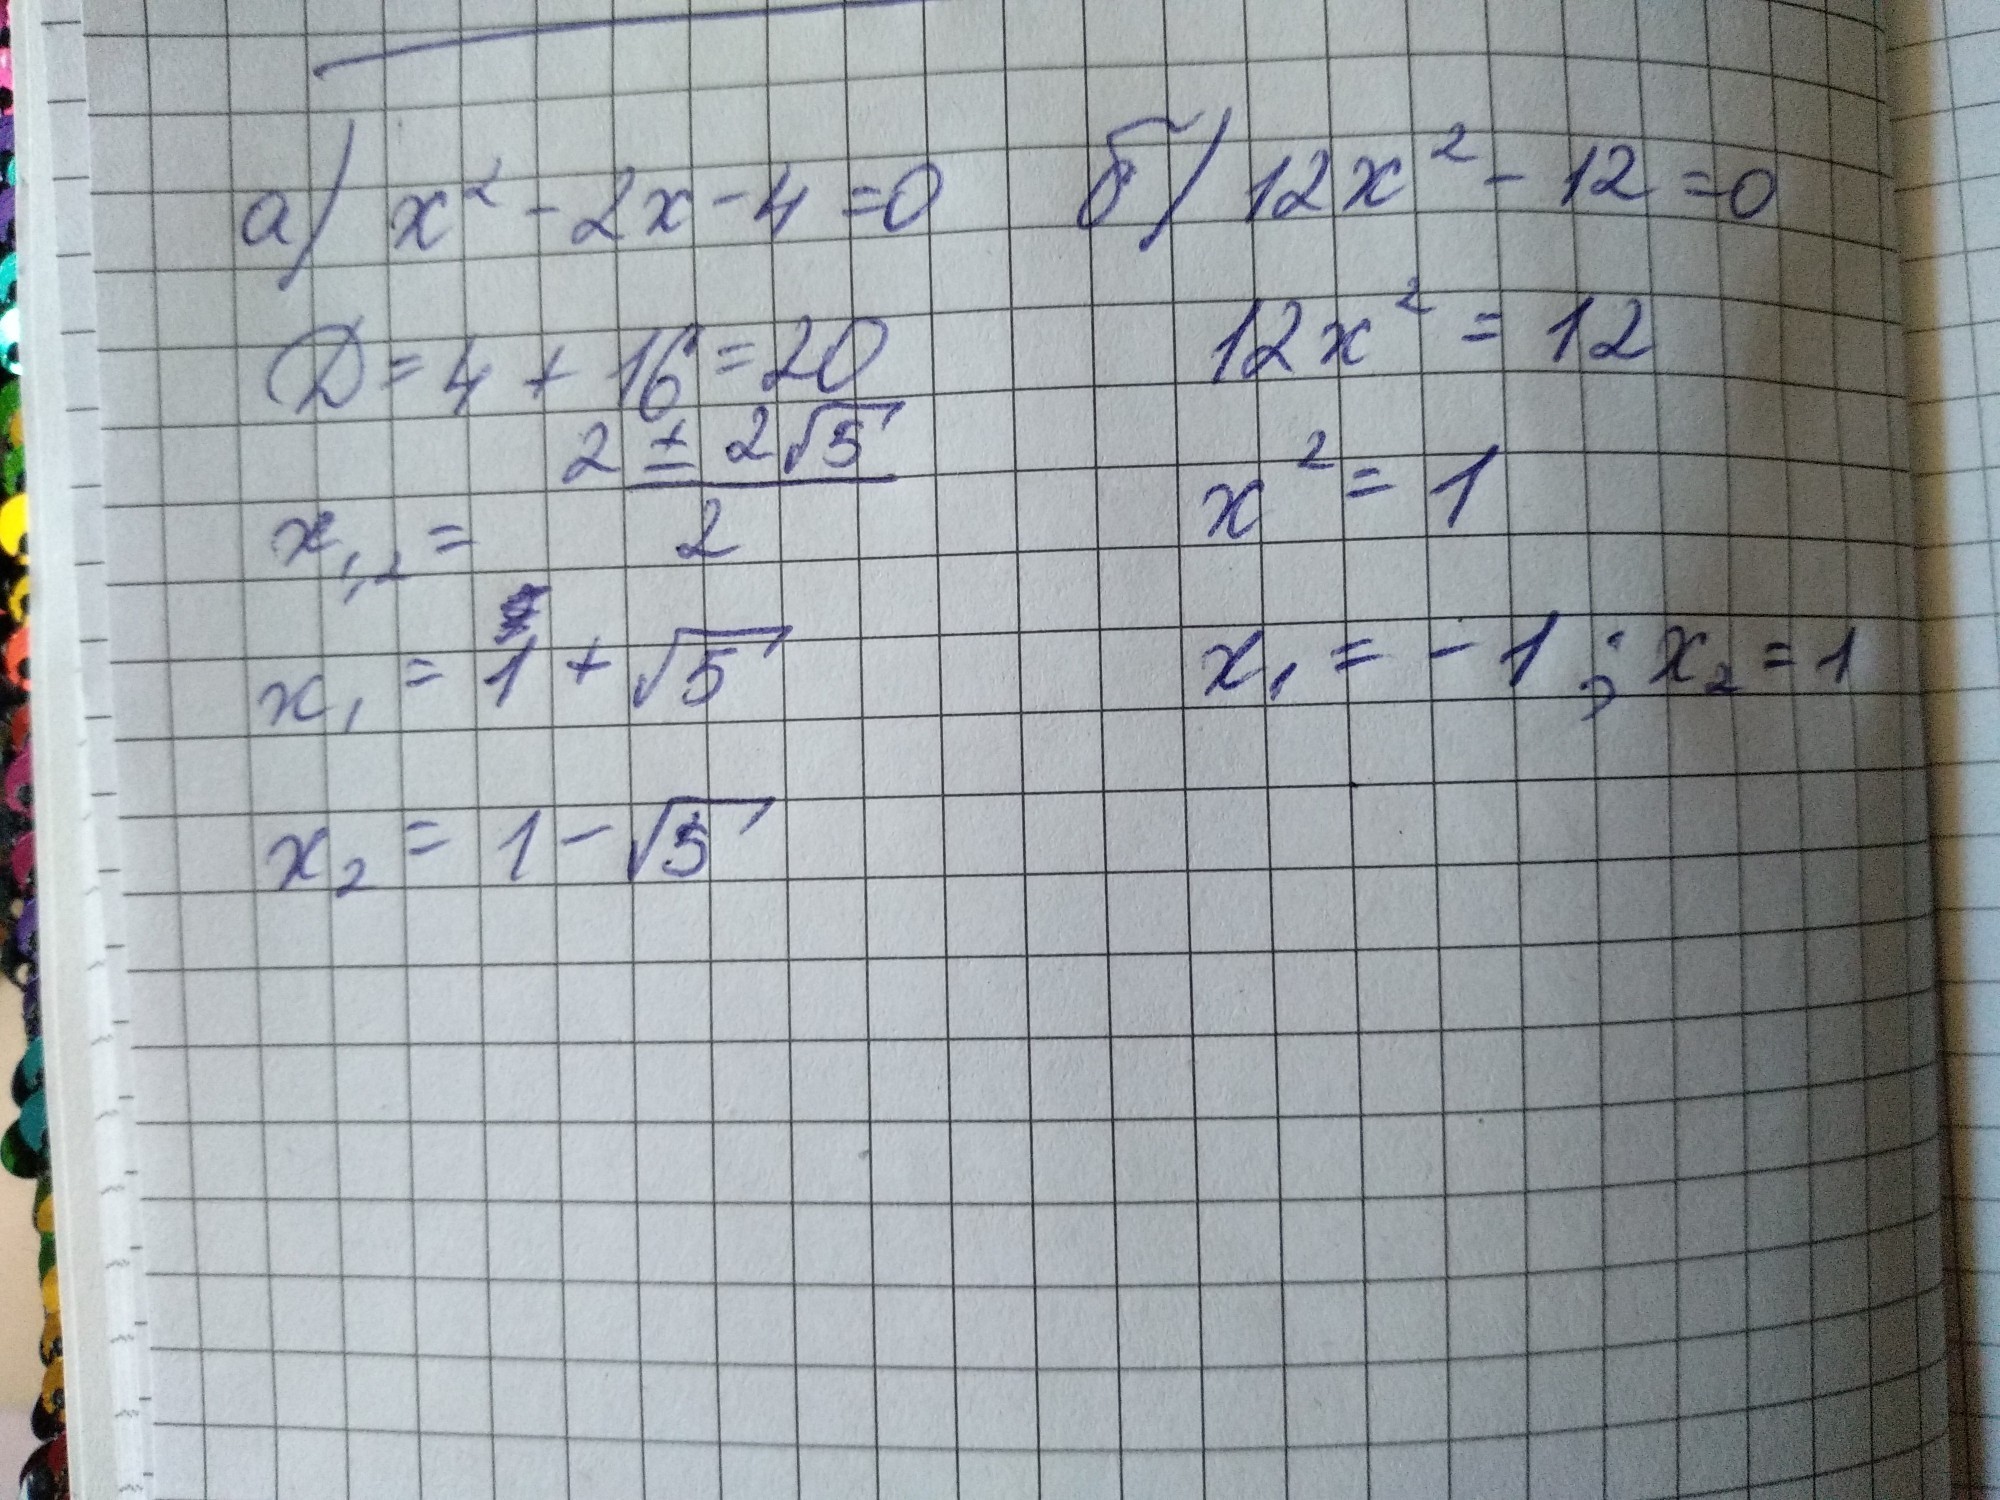 а) x² - 2x - 4 = 0
D = 4 + 16 = 20
x₁,₂ = (2 ± 2√5) / 2
x₁ = 1 + √5
x₂ = 1 - √5
б) 12x² - 12 = 0
12x² = 12
x² = 1
x₁ = -1 ; x₂ = 1